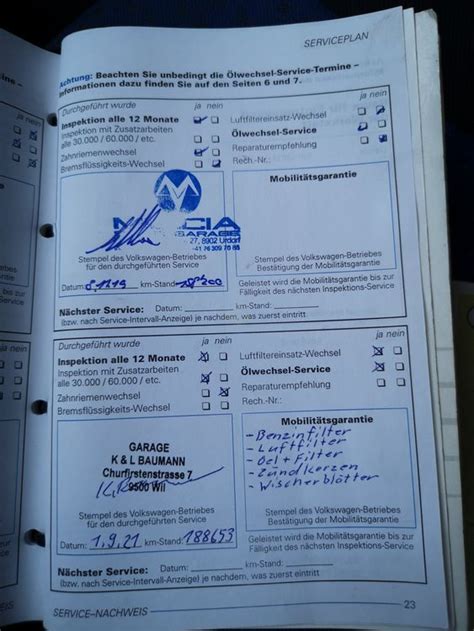 SERVICEPLAN
Achtung: Beachten Sie unbedingt die Ölwechsel-Service-Termine –
Informationen dazu finden Sie auf den Seiten 6 und 7.
Durchgeführt wurde ja nein
Inspektion alle 12 Monate
Inspektion mit Zusatzarbeiten
alle 30.000 / 60.000 / etc.
Zahnriemenwechsel
Bremsflüssigkeits-Wechsel
ja nein
Luftfiltereinsatz-Wechsel
Ölwechsel-Service
Reparaturempfehlung
Rech.-Nr.:
27, 8902 Urdorf
Stempel des Volkswagen-Betriebes
für den durchgeführten Service
Datum: km-Stand:
Mobilitätsgarantie
Stempel des Volkswagen-Betriebes
Bestätigung der Mobilitätsgarantie
Geleistet wird die Mobilitätsgarantie bis zur
Fälligkeit des nächsten Inspektions-Service
Nächster Service: Datum: km-Stand:
(bzw. nach Service-Intervall-Anzeige) je nachdem, was zuerst eintritt
Durchgeführt wurde ja nein
Inspektion alle 12 Monate
Inspektion mit Zusatzarbeiten
alle 30.000 / 60.000 / etc.
Zahnriemenwechsel
Bremsflüssigkeits-Wechsel
ja nein
Luftfiltereinsatz-Wechsel
Ölwechsel-Service
Reparaturempfehlung
Rech.-Nr.:
GARAGE
K & L BAUMANN
Churfirstenstrasse 7
9500 Wil
Stempel des Volkswagen-Betriebes
für den durchgeführten Service
Datum: 1.9.21 km-Stand: 188653
Mobilitätsgarantie
- Benzinfilter
- Luftfilter
- Oel + Filter
- Zündkerzen
- Wischerblätter
Stempel des Volkswagen-Betriebes
Bestätigung der Mobilitätsgarantie
Geleistet wird die Mobilitätsgarantie bis zur
Fälligkeit des nächsten Inspektions-Service
Nächster Service: Datum: km-Stand:
(bzw. nach Service-Intervall-Anzeige) je nachdem, was zuerst eintritt
SERVICE–NACHWEIS
23